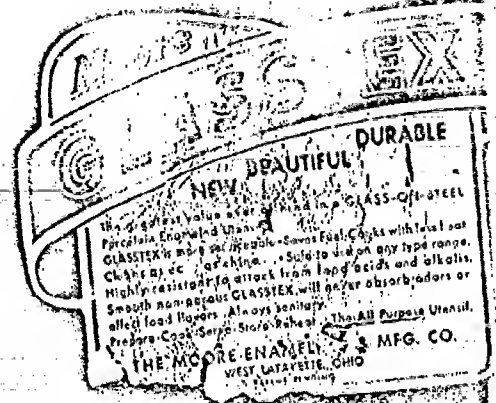 Moore's
GLASSTEX
NEW BEAUTIFUL DURABLE
The greatest value ever in GLASS-ON-STEEL
Porcelain Enameled
GLASSTEX is more serviceable-Saves Fuel, Cooks with less heat
Cleans as china. Safe to use on any type range.
Highly resistant to attack from food acids and alkalis.
Smooth non-porous GLASSTEX, will never absorb odors or
affect food flavors. Always sanitary.
Prepare-Cook-Serve-Store-Reheat The All Purpose Utensil.
THE MOORE ENAMEL MFG. CO.
WEST LAFAYETTE, OHIO